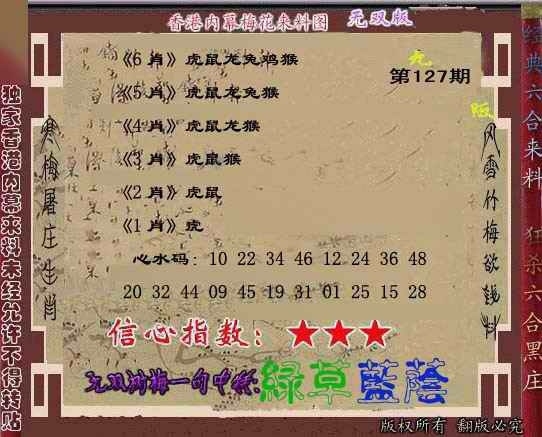 香港内幕梅花来料图 无双版
《6 肖》虎鼠龙兔鸡猴
第127期
《5 肖》虎鼠龙兔猴
《4 肖》虎鼠龙猴
《3 肖》虎鼠猴
《2 肖》虎鼠
《1 肖》虎
心水码：10 22 34 46 12 24 36 48
20 32 44 09 45 19 31 01 25 15 28
信心指数：★★★
綠草藍蔭
版权所有 翻版必究
独家香港内幕来料未经允许不得转贴
寒梅屠庄生肖
风雪竹梅欲钱料
经典六合来料 狂杀六合黑庄